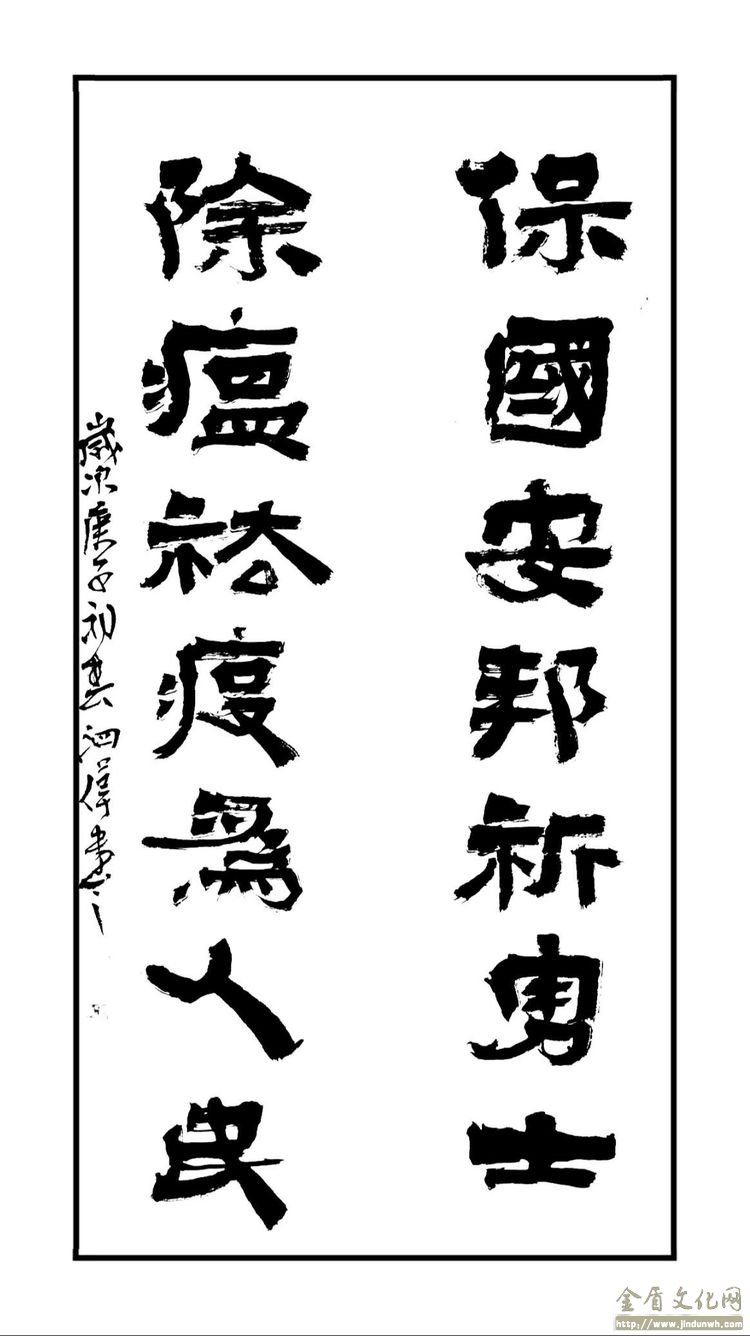 保國安邦祈勇士
除瘟祛疫爲人民
歲次庚子初春泗偉書
金盾文化网
http://www.jindunwh.com